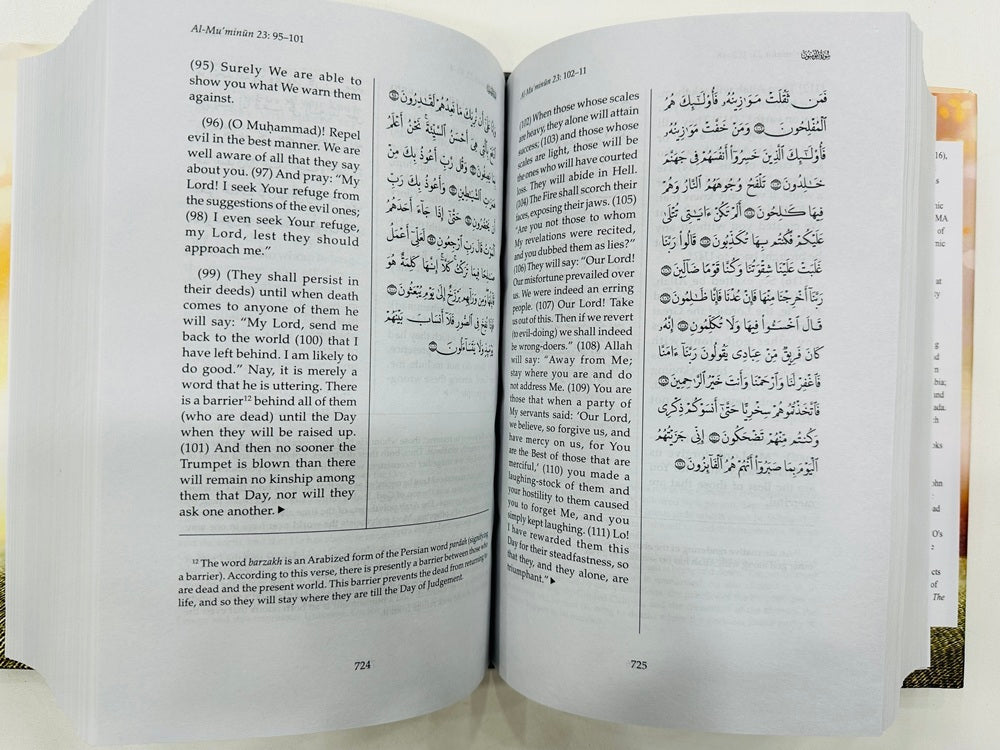 Al-Mu’minūn 23: 95–101
(95) Surely We are able to
show you what We warn them
against.
(96) (O Muḥammad)! Repel
evil in the best manner. We are
well aware of all that they say
about you. (97) And pray: “My
Lord! I seek Your refuge from
the suggestions of the evil ones;
(98) I even seek Your refuge,
my Lord, lest they should
approach me.”
(99) (They shall persist in
their deeds) until when death
comes to anyone of them he
will say: “My Lord, send me
back to the world (100) that I
have left behind. I am likely to
do good.” Nay, it is merely a
word that he is uttering. There
is a barrier¹² behind all of them
(who are dead) until the Day
when they will be raised up.
(101) And then no sooner the
Trumpet is blown than there
will remain no kinship among
them that Day, nor will they
ask one another. ▶
وَإِنَّا عَلَىٰٓ أَن نُّرِيَكَ مَا نَعِدُهُمْ لَقَـٰدِرُونَ ۝
ٱدْفَعْ بِٱلَّتِى هِىَ أَحْسَنُ ٱلسَّيِّئَةَ ۚ نَحْنُ أَعْلَمُ
بِمَا يَصِفُونَ ۝ وَقُل رَّبِّ أَعُوذُ بِكَ مِنْ
هَمَزَٰتِ ٱلشَّيَـٰطِينِ ۝ وَأَعُوذُ بِكَ رَبِّ
أَن يَحْضُرُونِ ۝ حَتَّىٰٓ إِذَا جَآءَ أَحَدَهُمُ
ٱلْمَوْتُ قَالَ رَبِّ ٱرْجِعُونِ ۝ لَعَلِّىٓ أَعْمَلُ
صَـٰلِحًا فِيمَا تَرَكْتُ ۚ كَلَّآ ۚ إِنَّهَا كَلِمَةٌ هُوَ
قَآئِلُهَا ۖ وَمِن وَرَآئِهِم بَرْزَخٌ إِلَىٰ يَوْمِ يُبْعَثُونَ ۝
فَإِذَا نُفِخَ فِى ٱلصُّورِ فَلَآ أَنسَابَ بَيْنَهُمْ
يَوْمَئِذٍ وَلَا يَتَسَآءَلُونَ ۝
¹² The word barzakh is an Arabized form of the Persian word pardah (signifying
a barrier). According to this verse, there is presently a barrier between those who
are dead and the present world. This barrier prevents the dead from returning to
life, and so they will stay where they are till the Day of Judgement.
724
Al-Mu’minūn 23: 102–11
(102) When those whose scales
are heavy, they alone will attain
success; (103) and those whose
scales are light, those will be
the ones who will have courted
loss. They will abide in Hell.
(104) The Fire shall scorch their
faces, exposing their jaws. (105)
“Are you not those to whom
My revelations were recited,
and you dubbed them as lies?”
(106) They will say: “Our Lord!
Our misfortune prevailed over
us. We were indeed an erring
people. (107) Our Lord! Take
us out of this. Then if we revert
(to evil-doing) we shall indeed
be wrong-doers.” (108) Allah
will say: “Away from Me;
stay where you are and do
not address Me. (109) You are
those that when a party of
My servants said: ‘Our Lord,
we believe, so forgive us, and
have mercy on us, for You
are the Best of those that are
merciful,’ (110) you made a
laughing-stock of them and
your hostility to them caused
you to forget Me, and you
simply kept laughing. (111) Lo!
I have rewarded them this
Day for their steadfastness, so
that they, and they alone, are
triumphant.” ▶
فَمَن ثَقُلَتْ مَوَٰزِينُهُۥ فَأُو۟لَـٰٓئِكَ هُمُ
ٱلْمُفْلِحُونَ ۝ وَمَنْ خَفَّتْ مَوَٰزِينُهُۥ
فَأُو۟لَـٰٓئِكَ ٱلَّذِينَ خَسِرُوٓا۟ أَنفُسَهُمْ فِى جَهَنَّمَ
خَـٰلِدُونَ ۝ تَلْفَحُ وُجُوهَهُمُ ٱلنَّارُ وَهُمْ
فِيهَا كَـٰلِحُونَ ۝ أَلَمْ تَكُنْ ءَايَـٰتِى تُتْلَىٰ
عَلَيْكُمْ فَكُنتُم بِهَا تُكَذِّبُونَ ۝ قَالُوا۟ رَبَّنَا
غَلَبَتْ عَلَيْنَا شِقْوَتُنَا وَكُنَّا قَوْمًا ضَآلِّينَ ۝
رَبَّنَآ أَخْرِجْنَا مِنْهَا فَإِنْ عُدْنَا فَإِنَّا ظَـٰلِمُونَ ۝
قَالَ ٱخْسَـُٔوا۟ فِيهَا وَلَا تُكَلِّمُونِ ۝ إِنَّهُۥ
كَانَ فَرِيقٌ مِّنْ عِبَادِى يَقُولُونَ رَبَّنَآ ءَامَنَّا
فَٱغْفِرْ لَنَا وَٱرْحَمْنَا وَأَنتَ خَيْرُ ٱلرَّٰحِمِينَ ۝
فَٱتَّخَذْتُمُوهُمْ سِخْرِيًّا حَتَّىٰٓ أَنسَوْكُمْ ذِكْرِى
وَكُنتُم مِّنْهُمْ تَضْحَكُونَ ۝ إِنِّى جَزَيْتُهُمُ
ٱلْيَوْمَ بِمَا صَبَرُوٓا۟ أَنَّهُمْ هُمُ ٱلْفَآئِزُونَ ۝
725
16),
MA
of
at
and
ada.
oks
ohn
ad
O’s
the
cts
of
The